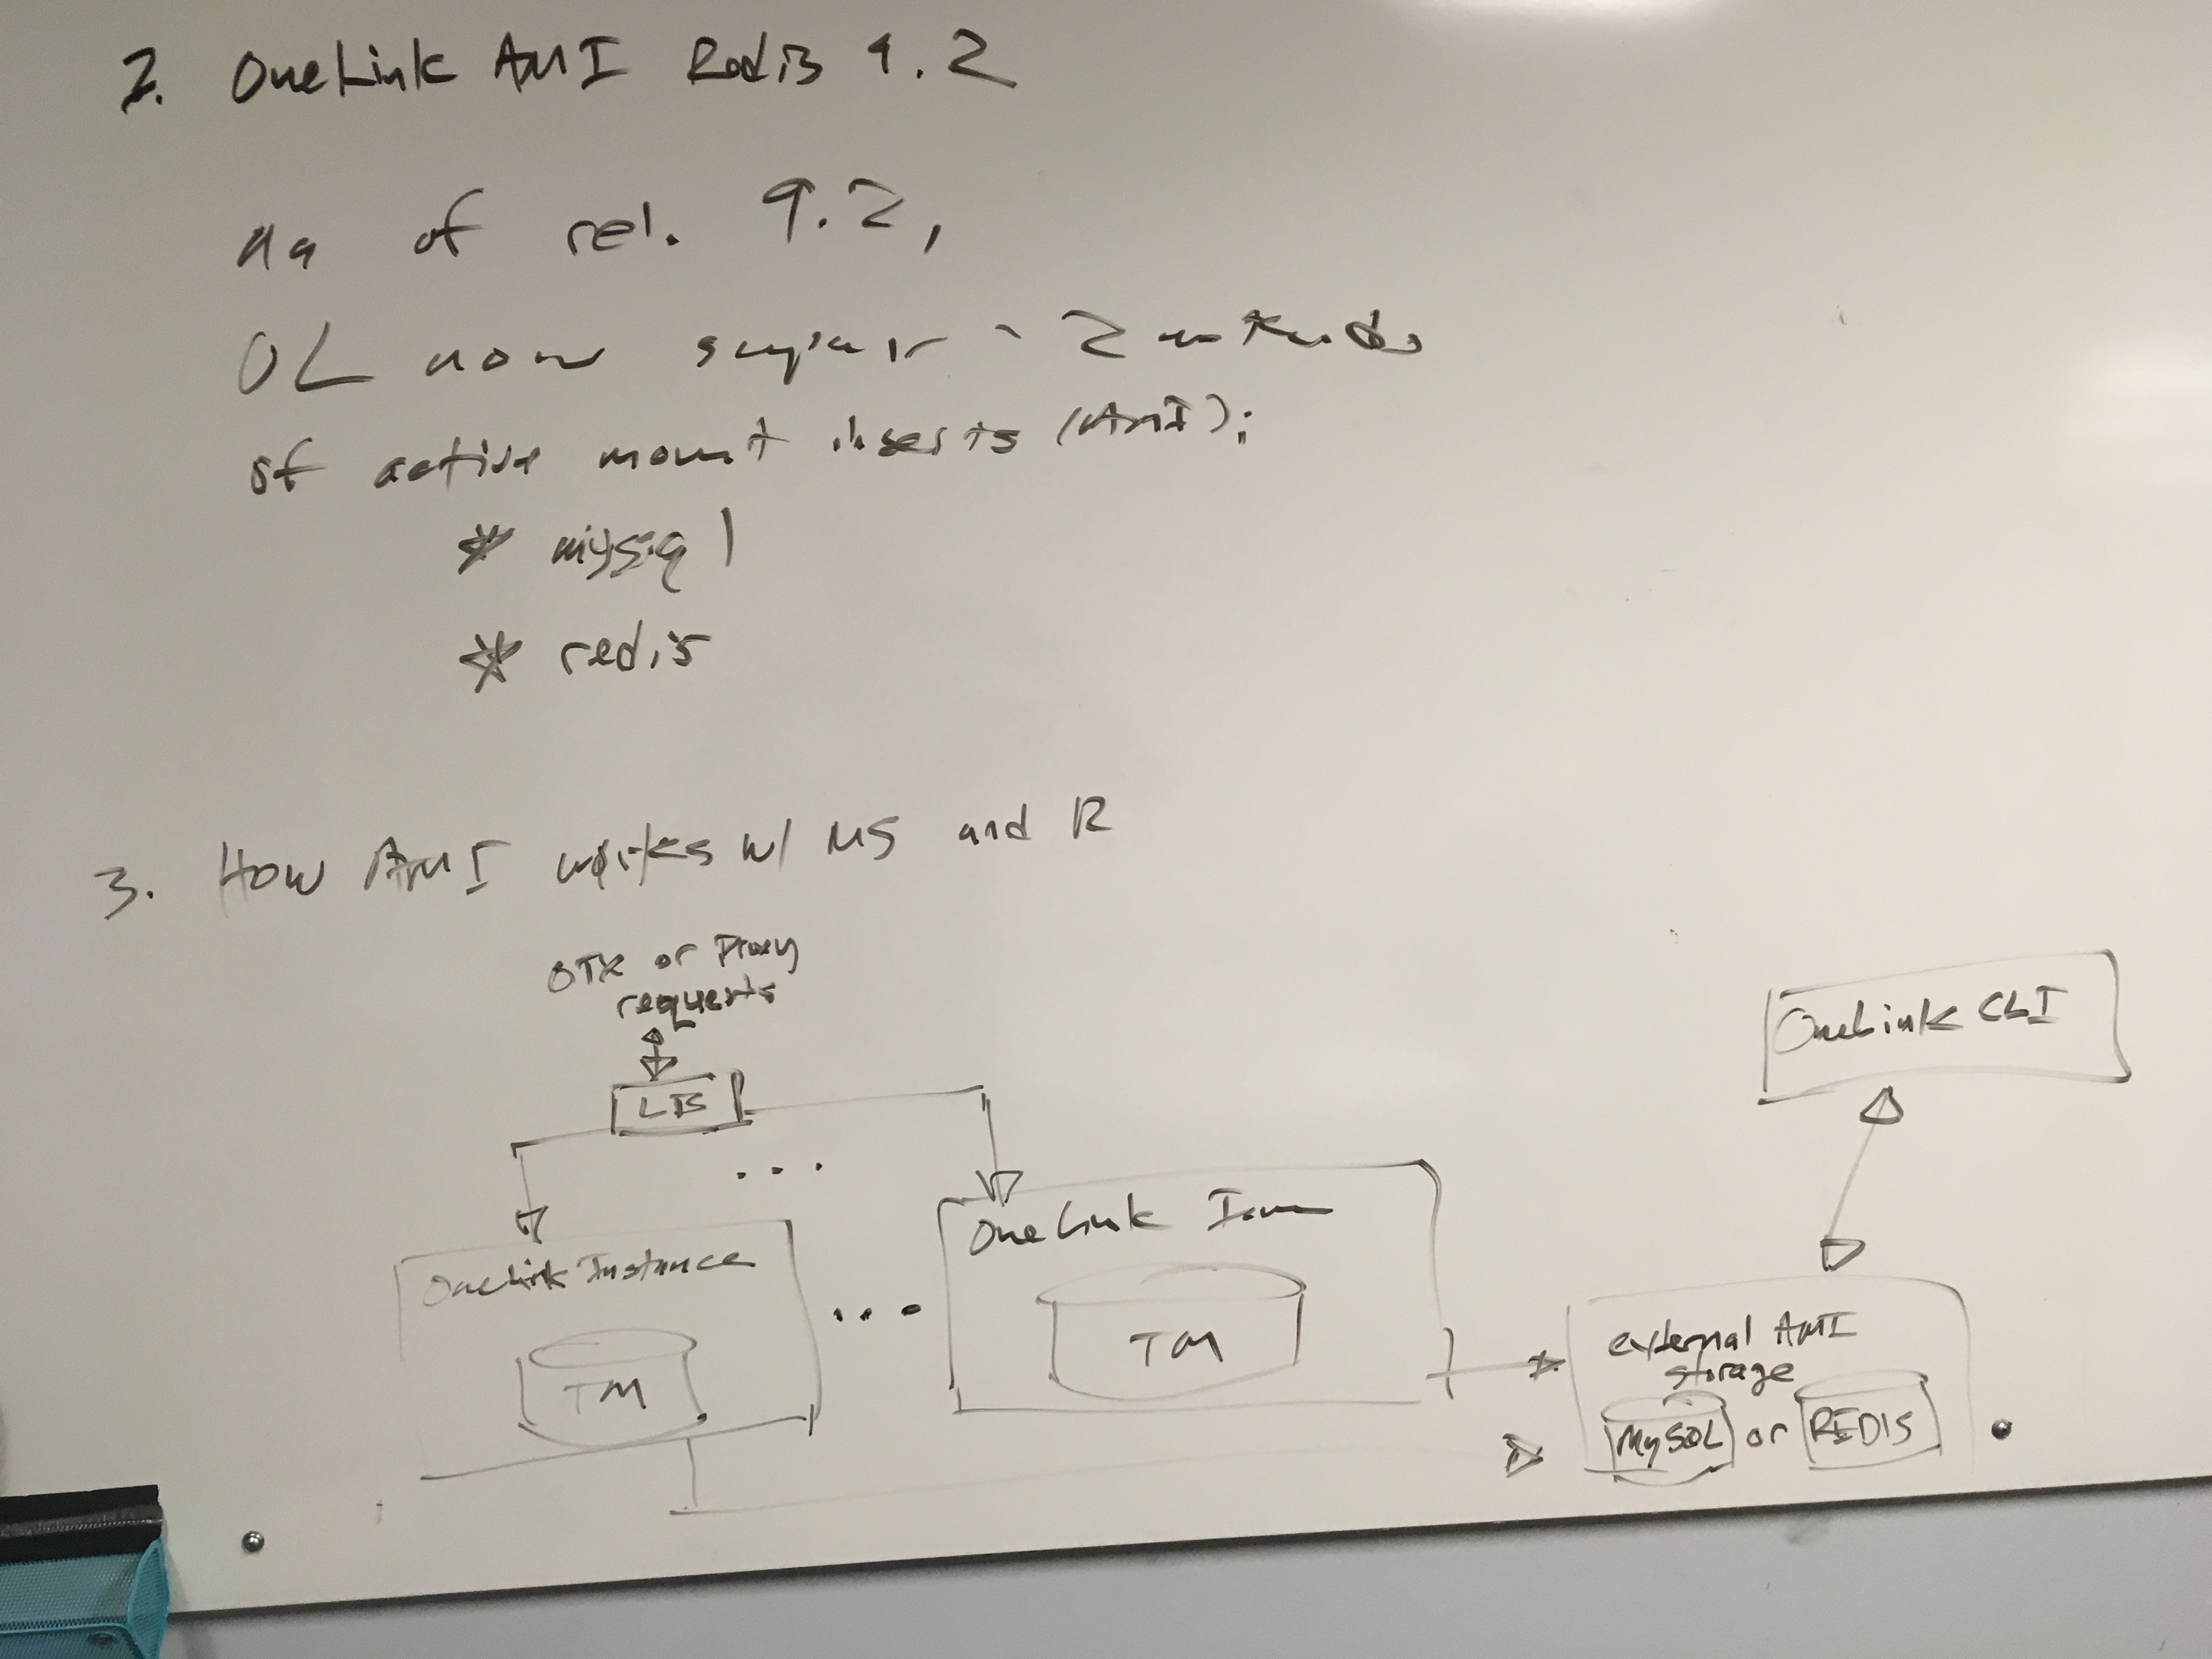 2. OneLink AMI Redis 9.2
as of rel. 9.2,
OL now supports 2 methods
of active mount inserts (AMI):
* mysql
* redis
3. How AMI works w/ MS and R
OTX or Proxy
requests
LB
...
OneLink CLI
OneLink Instance
TM
...
OneLink
TM
external AMI
storage
MySQL or REDIS